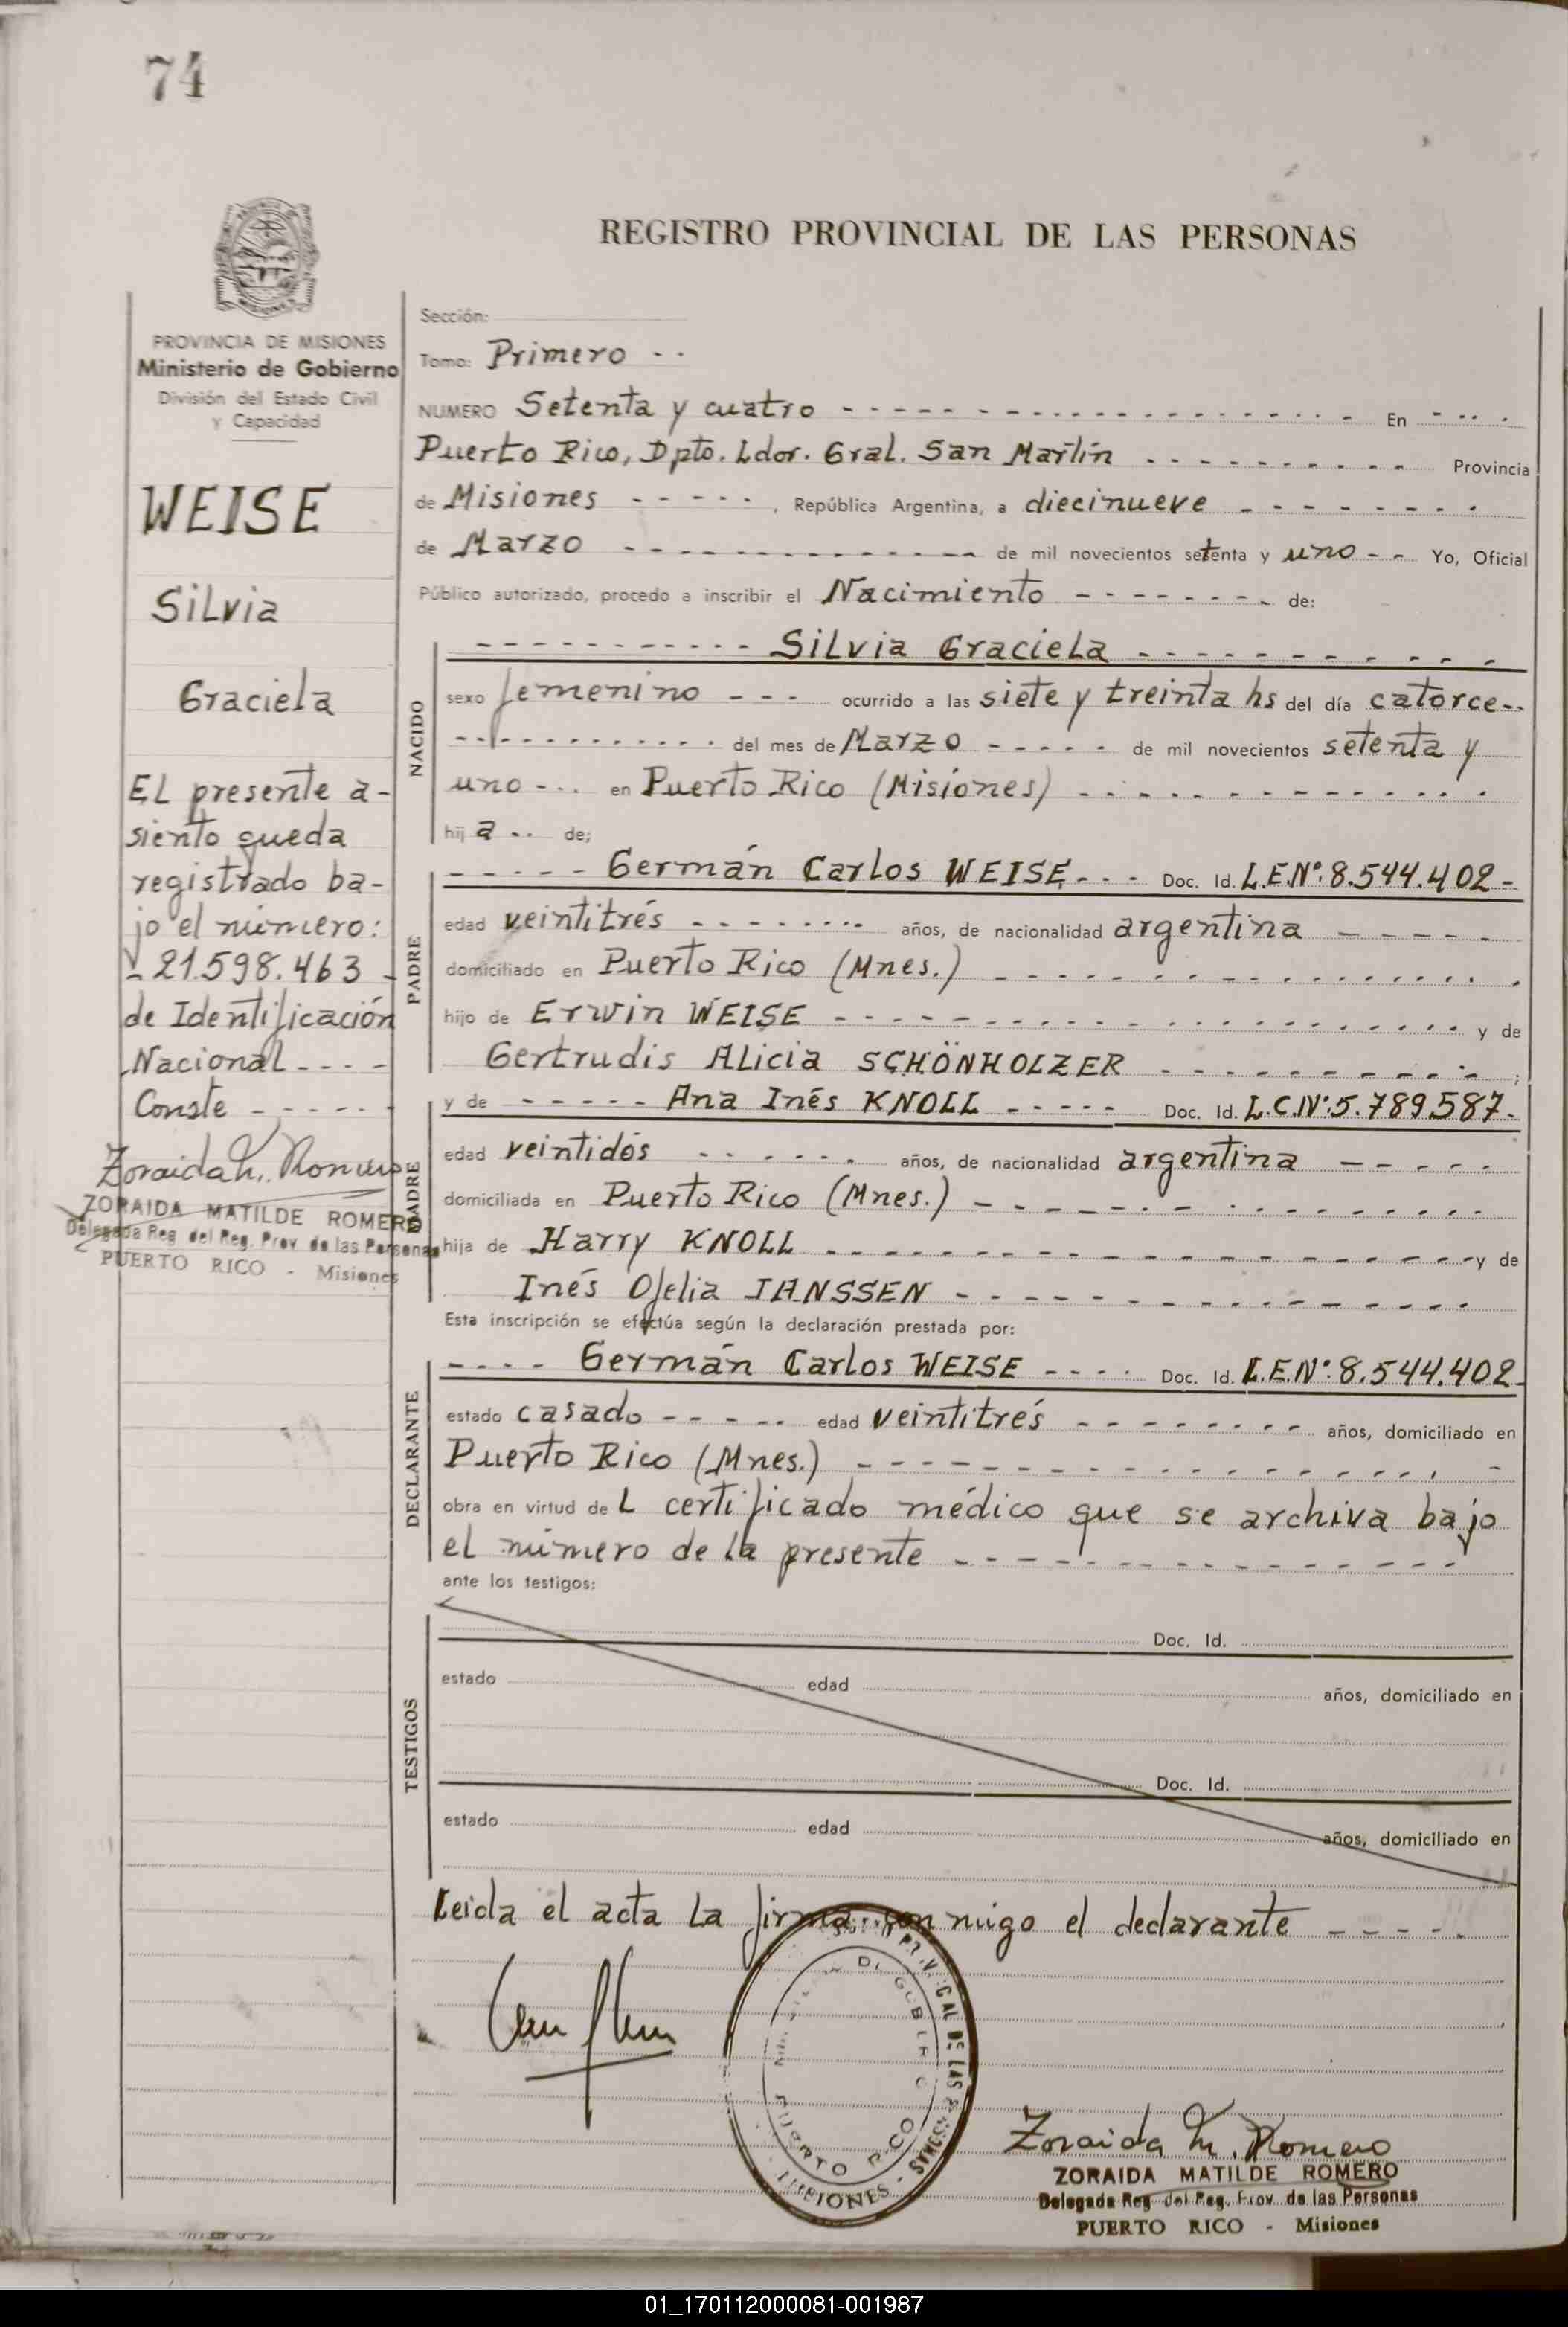 74
REGISTRO PROVINCIAL DE LAS PERSONAS
PROVINCIA DE MISIONES
Ministerio de Gobierno
División del Estado Civil
y Capacidad
WEISE
Silvia
Graciela
El presente a-
siento queda
registrado ba-
jo el número:
21.598.463 -
de Identificación
Nacional - - - -
Conste - - - - -
Zoraida M. Romero
ZORAIDA MATILDE ROMERO
Delegada Reg. del Reg. Prov. de las Personas
PUERTO RICO - Misiones
Sección:
Tomo: Primero - -
NUMERO Setenta y cuatro - - - - En - - - -
Puerto Rico, Dpto. Ldor. Gral. San Martín - - - - Provincia
de Misiones - - - - -, República Argentina, a diecinueve - - - -
de Marzo - - - - de mil novecientos setenta y uno - - Yo, Oficial
Público autorizado, procedo a inscribir el Nacimiento - - - - de:
NACIDO
- - - - Silvia Graciela - - - -
sexo femenino - - - ocurrido a las siete y treinta hs del día catorce - -
- - - - del mes de Marzo - - - - - de mil novecientos setenta y
uno - - - en Puerto Rico (Misiones) - - - -
hij a - - de;
PADRE
- - - - - Germán Carlos WEISE - - - Doc. Id. L.E.Nº: 8.544.402 -
edad veintitrés - - - - años, de nacionalidad argentina - - - - -
domiciliado en Puerto Rico (Mnes.) - - - -
hijo de Erwin WEISE - - - - y de
Gertrudis Alicia SCHÖNHOLZER - - - - ;
MADRE
y de - - - - - Ana Inés KNOLL - - - - - Doc. Id. L.C.Nº: 5.789.587 -
edad veintidós - - - - años, de nacionalidad argentina - - - - -
domiciliada en Puerto Rico (Mnes.) - - - -
hija de Harry KNOLL - - - - y de
Inés Ofelia JANSSEN - - - -
Esta inscripción se efectúa según la declaración prestada por:
DECLARANTE
- - - - Germán Carlos WEISE - - - - Doc. Id. L.E.Nº: 8.544.402 -
estado casado - - - - - edad veintitrés - - - - años, domiciliado en
Puerto Rico (Mnes.) - - - -
obra en virtud de L certificado médico que se archiva bajo
el número de la presente - - - -
ante los testigos:
TESTIGOS
Doc. Id.
estado edad años, domiciliado en
Doc. Id.
estado edad años, domiciliado en
Leida el acta la firma conmigo el declarante - - - -
PUERTO RICO
MISIONES
Zoraida M. Romero
ZORAIDA MATILDE ROMERO
Delegada Reg. del Reg. Prov. de las Personas
PUERTO RICO - Misiones
01_170112000081-001987